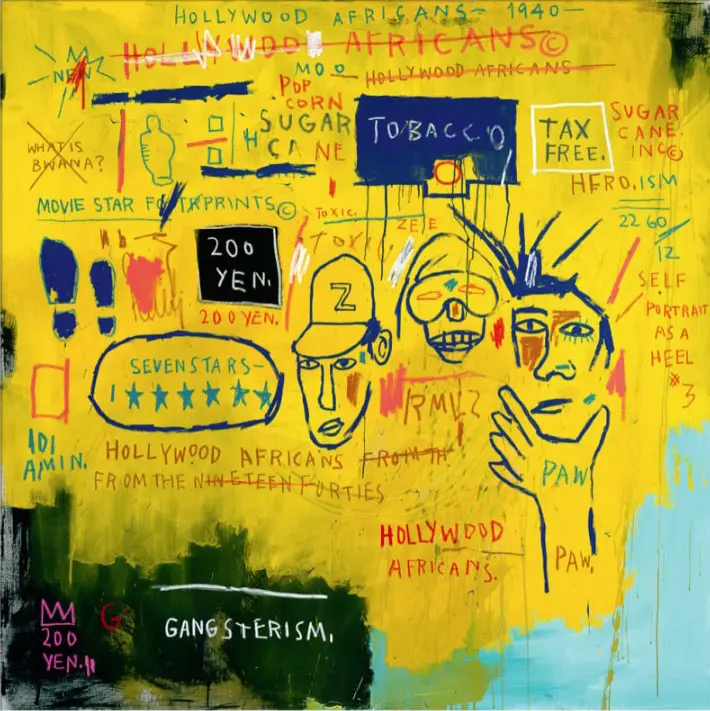 HOLLYWOOD AFRICANS- 1940-
HOLLYWOOD AFRICANS©
NEW
MOO
HOLLYWOOD AFRICANS
POP
CORN
WHAT IS
BWANA?
H
SUGAR
CANE
TOBACCO
TAX
FREE.
SUGAR
CANE.
INC©
HERO.ISM
MOVIE STAR FOTRPRINTS©
TOXIC.
ZEE
TOXI
22 60
12
200
YEN.
200 YEN.
Z
SELF
PORTRAIT
AS A
HEEL
#3
SEVEN STARS-
1 ★★★★★★
RMLZ
IDI
AMIN.
HOLLYWOOD AFRICANS FROM TH
FROM THE NINETEEN FORTIES
PAW
HOLLYWOOD
AFRICANS.
PAW.
200
YEN.
G
GANGSTERISM.